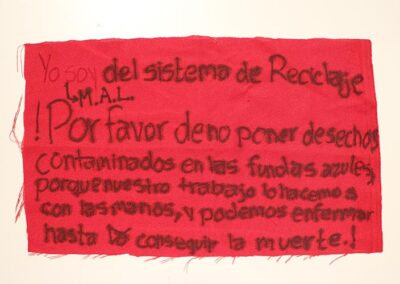 Yo soy del sistema de Reciclaje
↳M.A.L.
!Por favor de no poner desechos
contaminados en las fundas azules,
porque nuestro trabajo lo hacemos
con las manos, y podemos enfermar
hasta conseguir la muerte.!